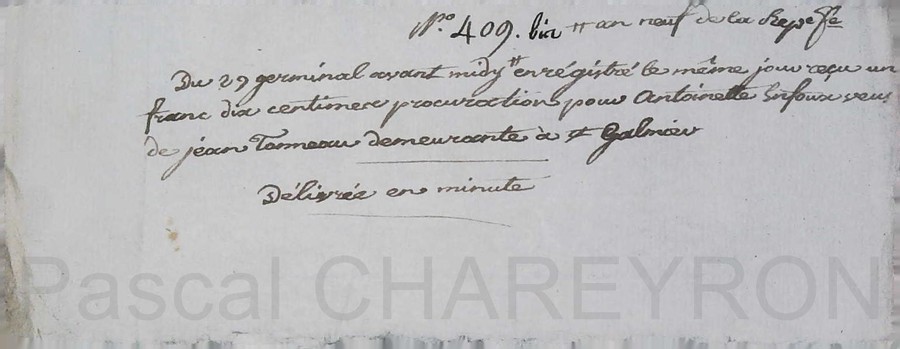 N.ro 409. bis " an neuf de la Rep. fse
Du 29 germinal avant midy " enrégistré le même jour reçu un
franc dix centimes procuration pour Antoinette veuve
de jéan Tonneau demeurante à st Galmier
Délivrée en minute
Pascal CHAREYRON